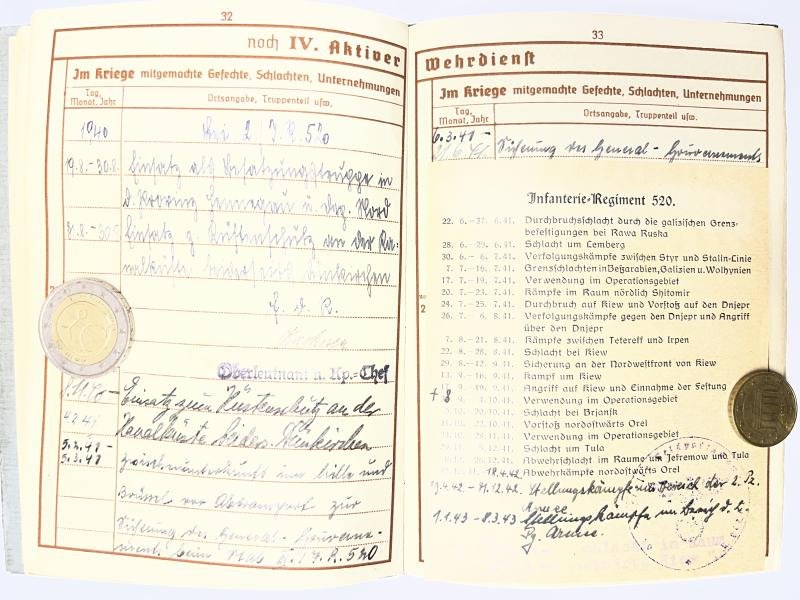 32
noch IV. Aktiver
Im Kriege mitgemachte Gefechte, Schlachten, Unternehmungen
Tag, Monat, Jahr
Ortsangabe, Truppenteil usw.
1940 bei 2/ J.R. 520
19.8.-30.8. Einsatz als Besatzungstruppe in
d. Provinz Hennegau u. Dep. Nord
31.8.- Einsatz z. Küstenschutz an der Ka-
nalküste beiderseits Dünkirchen
F. d. R.
Oberleutnant u. Kp.-Chef
Einsatz zum Küstenschutz an der
4.2.41 Kanalküste beiders. Dünkirchen
5.2.41- Zwischenunterkunft in Lille und
5.3.41
Brüssel vor Abtransport zur
Sicherung des General-Gouverne-
ment, beim Stab J.R. 520
33
Wehrdienst
Im Kriege mitgemachte Gefechte, Schlachten, Unternehmungen
Tag, Monat, Jahr
Ortsangabe, Truppenteil usw.
6.3.41-
21.6.41 Sicherung des General-Gouvernements
Infanterie-Regiment 520.
22. 6.-27. 6.41. Durchbruchsschlacht durch die galizischen Grenz-
befestigungen bei Rawa Ruska
28. 6.-29. 6.41. Schlacht um Lemberg
30. 6.- 6. 7.41. Verfolgungskämpfe zwischen Styr und Stalin-Linie
7. 7.-16. 7.41. Grenzschlachten in Beßarabien, Galizien u. Wolhynien
17. 7.-19. 7.41. Verwendung im Operationsgebiet
20. 7.-23. 7.41. Kämpfe im Raum nördlich Shitomir
24. 7.-25. 7.41. Durchbruch auf Kiew und Vorstoß auf den Dnjepr
26. 7.- 6. 8.41. Verfolgungskämpfe gegen den Dnjepr und Angriff
über den Dnjepr
7. 8.-21. 8.41. Kämpfe zwischen Tetereff und Irpen
22. 8.-28. 8.41. Schlacht bei Kiew
29. 8.-12. 9.41. Sicherung an der Nordwestfront von Kiew
13. 9.-16. 9.41. Kampf um Kiew
19. 9.41. Angriff auf Kiew und Einnahme der Festung
3.10.41. Verwendung im Operationsgebiet
10.41. Schlacht bei Brjansk
10.41. Vorstoß nordostwärts Orel
11.41. Verwendung im Operationsgebiet
12.41. Schlacht um Tula
41. Abwehrschlacht im Raume um Jefremow und Tula
18.4.42 Abwehrkämpfe nordostwärts Orel
19.4.42 - 31.12.42. Stellungskämpfe im Bereich der 2. Pz.
Armee
1.1.43 - 8.3.43 Stellungskämpfe im Bereich d. 2.
Pz. Armee.